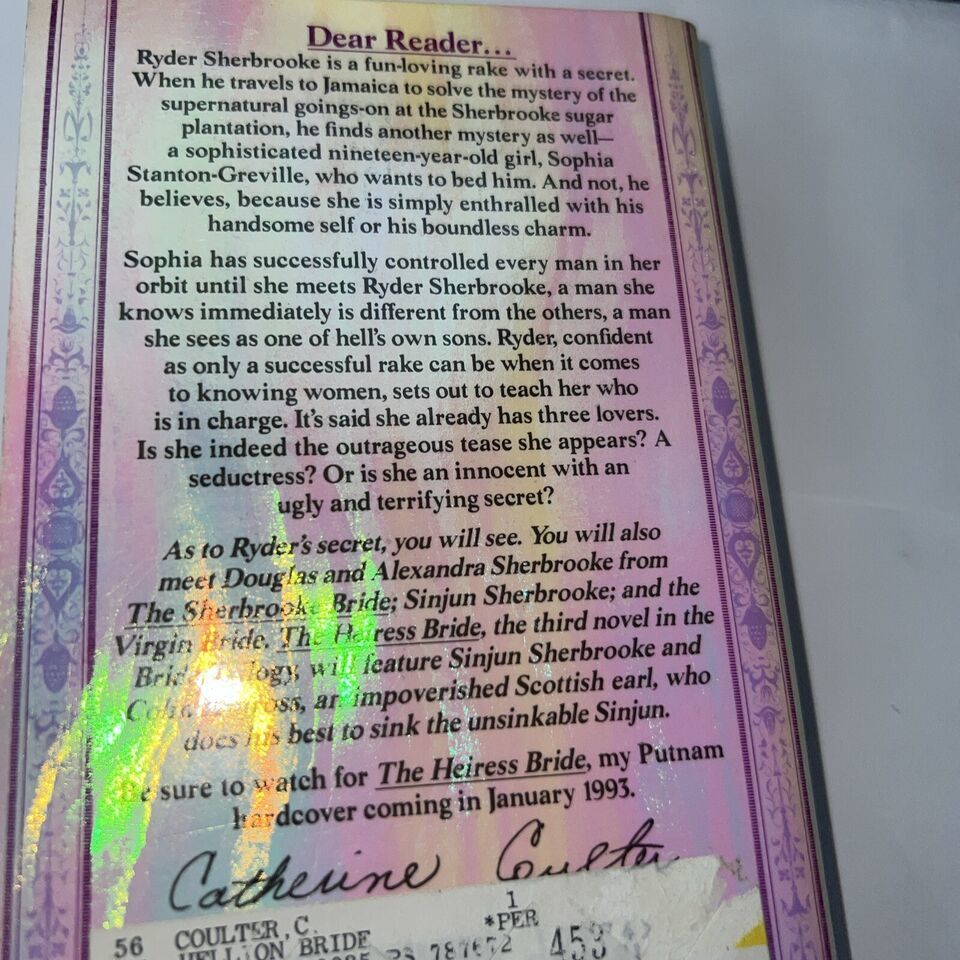 Dear Reader...
Ryder Sherbrooke is a fun-loving rake with a secret.
When he travels to Jamaica to solve the mystery of the
supernatural goings-on at the Sherbrooke sugar
plantation, he finds another mystery as well—
a sophisticated nineteen-year-old girl, Sophia
Stanton-Greville, who wants to bed him. And not, he
believes, because she is simply enthralled with his
handsome self or his boundless charm.
Sophia has successfully controlled every man in her
orbit until she meets Ryder Sherbrooke, a man she
knows immediately is different from the others, a man
she sees as one of hell's own sons. Ryder, confident
as only a successful rake can be when it comes
to knowing women, sets out to teach her who
is in charge. It's said she already has three lovers.
Is she indeed the outrageous tease she appears? A
seductress? Or is she an innocent with an
ugly and terrifying secret?
As to Ryder's secret, you will see. You will also
meet Douglas and Alexandra Sherbrooke from
The Sherbrooke Bride; Sinjun Sherbrooke; and the
Virgin Bride. The Heiress Bride, the third novel in the
Bride Trilogy, will feature Sinjun Sherbrooke and
an impoverished Scottish earl, who
does his best to sink the unsinkable Sinjun.
Be sure to watch for The Heiress Bride, my Putnam
hardcover coming in January 1993.
Catherine Coulter
1
56 COULTER, C. *PER
HELLION BRIDE 459